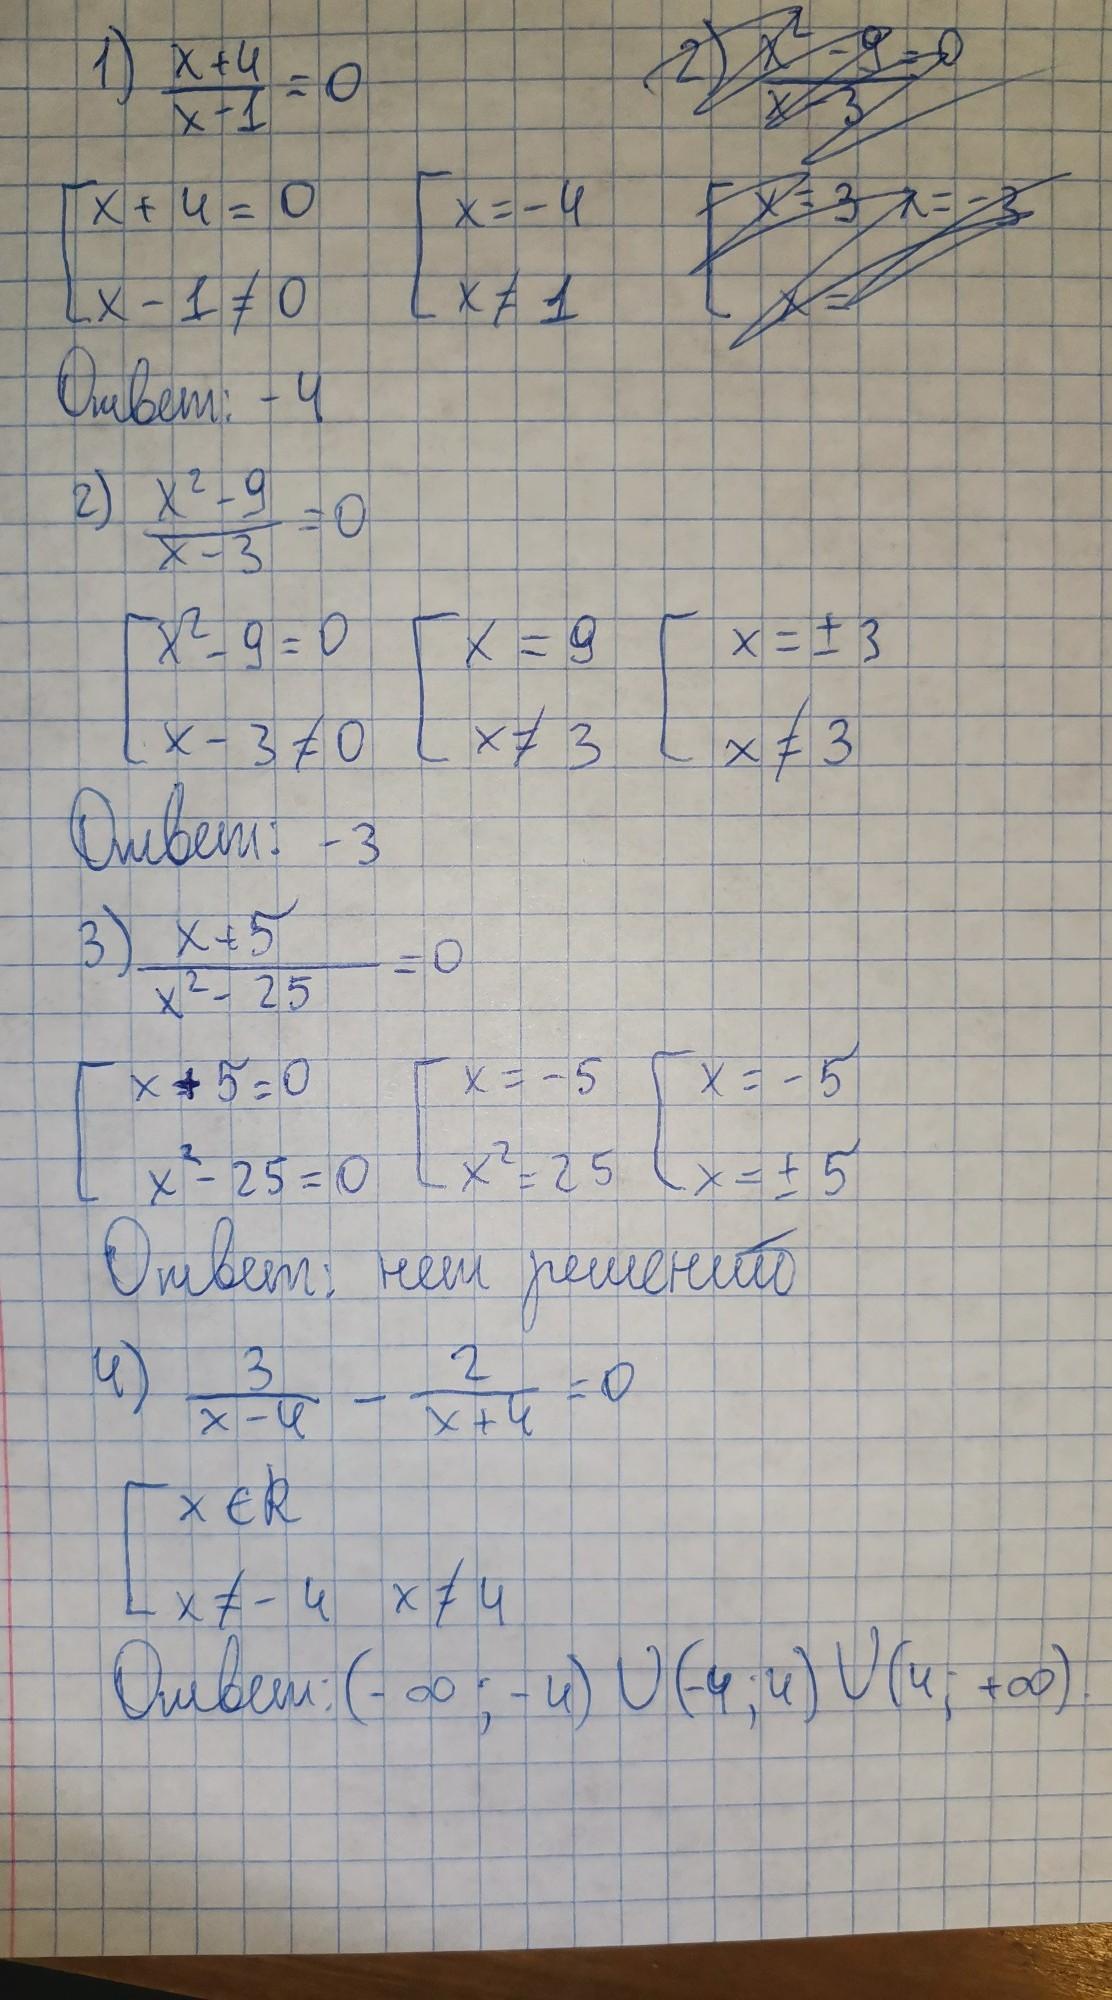 1) (x+4)/(x-1) = 0
2) (x² - 9)/(x - 3) = 0
[ x + 4 = 0 [ x = -4 [ x = 3 x = -3
x - 1 ≠ 0 x ≠ 1 x =
Ответ: -4
2) (x² - 9)/(x - 3) = 0
[ x² - 9 = 0 [ x = 9 [ x = ± 3
x - 3 ≠ 0 x ≠ 3 x ≠ 3
Ответ: -3
3) (x + 5)/(x² - 25) = 0
[ x + 5 = 0 [ x = -5 [ x = -5
x² - 25 = 0 x² = 25 x = ± 5
Ответ: нет решений
4) 3/(x - 4) - 2/(x + 4) = 0
[ x ∈ R
x ≠ -4 x ≠ 4
Ответ: (-∞; -4) ∪ (-4; 4) ∪ (4; +∞).